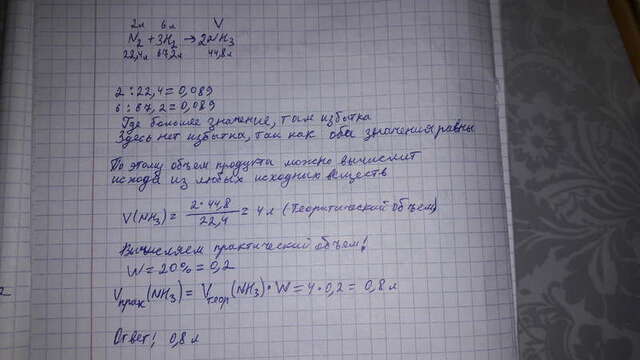 2л 6л V
N₂ + 3H₂ → 2NH₃
22,4л 67,2л 44,8л
2 : 22,4 = 0,089
6 : 67,2 = 0,089
Где большее значение, там избытка
Здесь нет избытка, так как оба значения равны
По этому объем продукта можно вычислит
исхода из любых исходных веществ
V(NH₃) = 2·44,8 / 22,4 = 4 л (Теоритический объем)
Вычисляем практический объем!
W = 20% = 0,2
Vпрак(NH₃) = Vтеор(NH₃) · W = 4 · 0,2 = 0,8 л
Ответ! 0,8 л
2